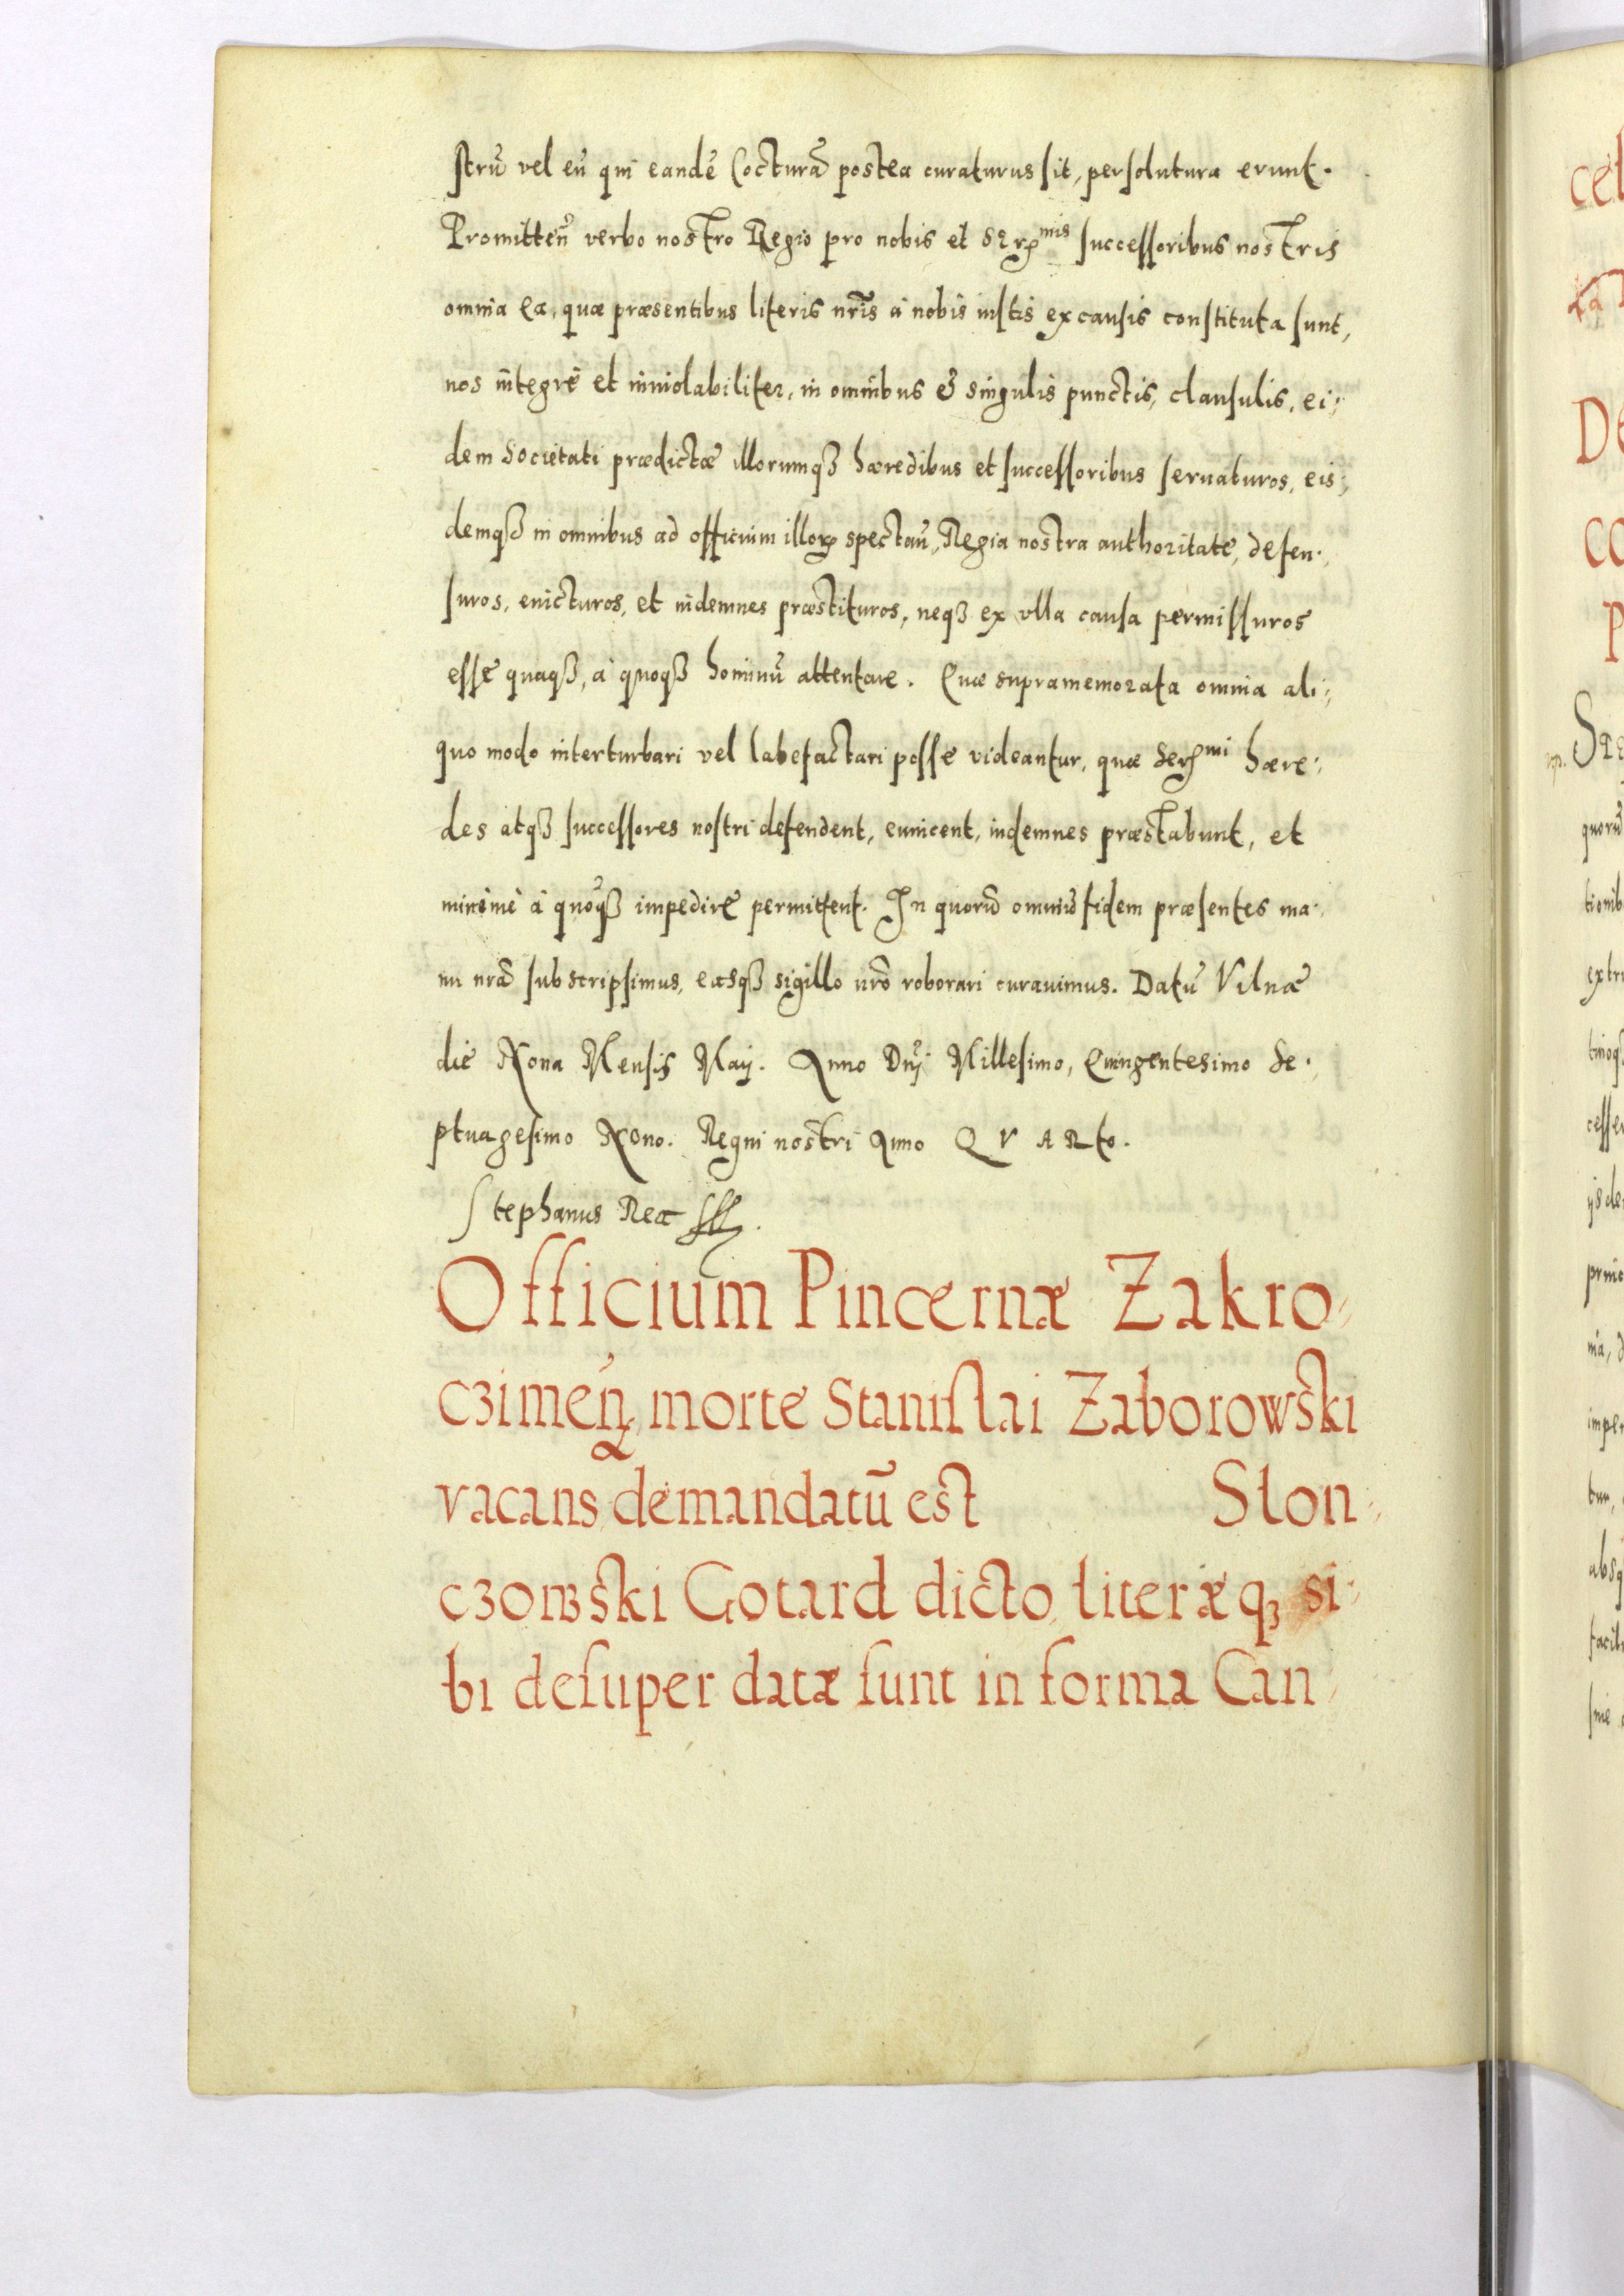 strũ vel eũ qui eandẽ Cocturã postea curaturus sit, persolutura erunt.
Promitteñ verbo nostro Regio pro nobis et Sermis successoribus nostris
omnia ea, quæ præsentibus literis nr̃is à nobis iustis ex causis constituta sunt,
nos integrè et inuiolabiliter, in omnibus & singulis punctis, clausulis, ei-
dem Societati prædictæ illorumqꝫ hæredibus et successoribus seruaturos, eis-
demqꝫ in omnibus ad officium illoꝝ spectañ, Regia nostra authoritate, defen-
suros, euicturos, et indemnes præstituros, neqꝫ ex vlla causa permissuros
esse quaqꝫ, à quoqꝫ hominũ attentare. Quæ supramemorata omnia ali-
quo modo interturbari vel labefactari posse videantur, quæ Sermi hære-
des atqꝫ successores nostri defendent, euincent, indemnes præstabunt, et
minimè à quoqꝫ impedire permittent. In quorũ omniũ fidem præsentes ma-
nu nrã subscripsimus, easqꝫ sigillo nrõ roborari curauimus. Datũ Vilnæ
die Nona Mensis Maij. Anno Dñi Millesimo, Quingentesimo Se-
ptuagesimo Nono. Regni nostri Anno QVARto.
Stephanus Rex
Officium Pincernæ Zakro-
cziméñ morte Stanislai Zaborowski
vacans demandatũ est Slon-
czowski Gotard dicto literæqꝫ si-
bi desuper datæ sunt in forma Can-